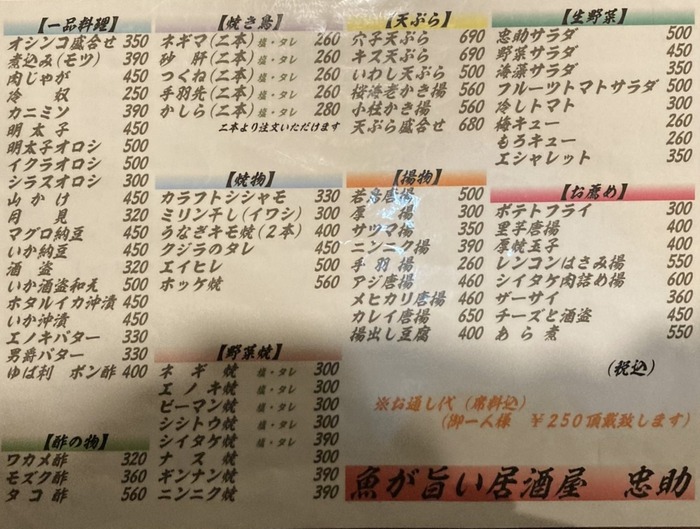 【一品料理】
オシンコ盛合せ 350
煮込み(モツ) 390
肉じゃが 450
冷 奴 250
カニミソ 390
明太子 450
明太子オロシ 500
イクラオロシ 500
シラスオロシ 300
山かけ 450
月見 320
マグロ納豆 450
いか納豆 450
酒盗 320
いか酒盗和え 500
ホタルイカ沖漬 450
いか沖漬 450
エノキバター 330
男爵バター 330
ゆば刺 ポン酢 400
【酢の物】
ワカメ酢 320
モズク酢 360
タコ酢 560
【焼き鳥】
ネギマ(二本) 塩・タレ 260
砂肝(二本) 塩・タレ 260
つくね(二本) 塩・タレ 260
手羽先(二本) 塩・タレ 260
かしら(二本) 塩・タレ 280
二本より注文いただけます
【焼物】
カラフトシシャモ 330
ミリン干し(イワシ) 300
うなぎキモ焼(2本) 400
クジラのタレ 450
エイヒレ 500
ホッケ焼 560
【野菜焼】
ネギ焼 塩・タレ 300
エノキ焼 塩・タレ 300
ピーマン焼 塩・タレ 300
シシトウ焼 塩・タレ 300
シイタケ焼 塩・タレ 390
ナス焼 300
ギンナン焼 390
ニンニク焼 390
【天ぷら】
穴子天ぷら 690
キス天ぷら 690
いわし天ぷら 500
桜海老かき揚 560
小柱かき揚 560
天ぷら盛合せ 680
【揚物】
若鳥唐揚 500
厚揚 300
サツマ揚 350
ニンニク揚 390
手羽揚 260
アジ唐揚 460
メヒカリ唐揚 460
カレイ唐揚 650
揚出し豆腐 400
【生野菜】
忠助サラダ 500
野菜サラダ 450
海藻サラダ 350
フルーツトマトサラダ 500
冷しトマト 300
梅キュー 260
もろキュー 260
エシャレット 350
【お薦め】
ポテトフライ 300
里芋唐揚 400
厚焼玉子 400
レンコンはさみ揚 550
シイタケ肉詰め揚 600
ザーサイ 360
チーズと酒盗 450
あら煮 550
(税込)
※お通し代(席料込)
(御一人様 ¥250頂戴致します)
魚が旨い居酒屋 忠助